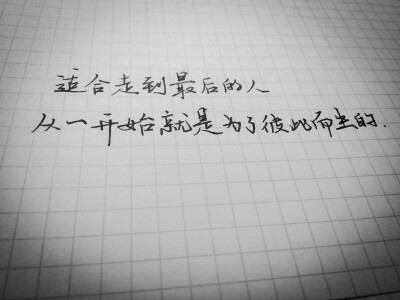 适合走到最后的人
从一开始就是为了彼此而生的.